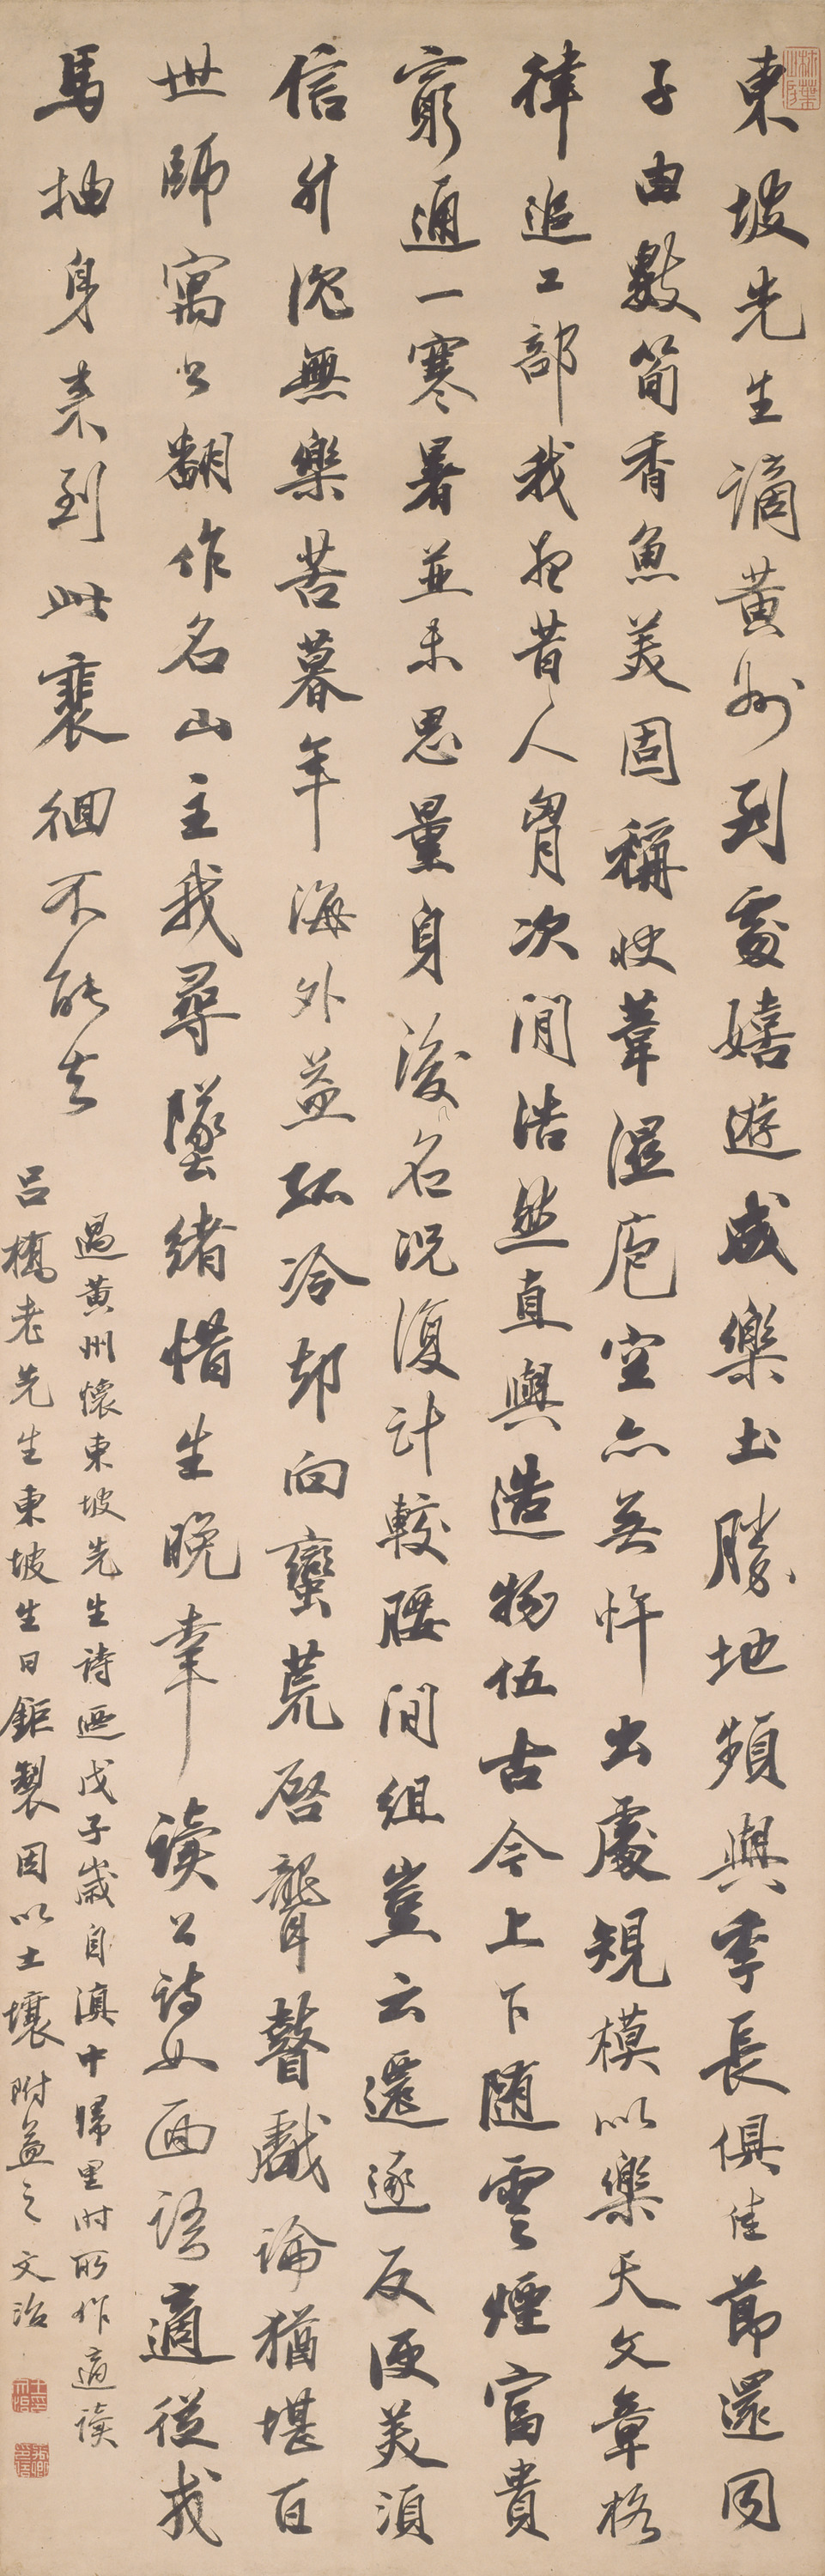 東坡先生謫黃州到處嬉遊成樂土勝地頻與季長俱佳節還同
子由數筍香魚美固稱快葦濕庖空亦無忤出處規模以樂天文章格
律追工部我想昔人胷次間浩然直與造物伍古今上下随雲煙富貴
窮通一寒暑並未思量身後名況復計較腰間組豈云還逐反便美須
信升沉無樂苦暮年海外益孤冷却向蠻荒啓聾瞽戲論猶堪百
世師寓公翻作名山主我尋墜緒惜生晚幸讀公詩如面語適從我
馬抽身来到此裴徊不能去
過黃州懷東坡先生詩迺戊子歲自滇中歸里時所作適讀
呂橋老先生東坡生日鉅製因以土壤附益之文治